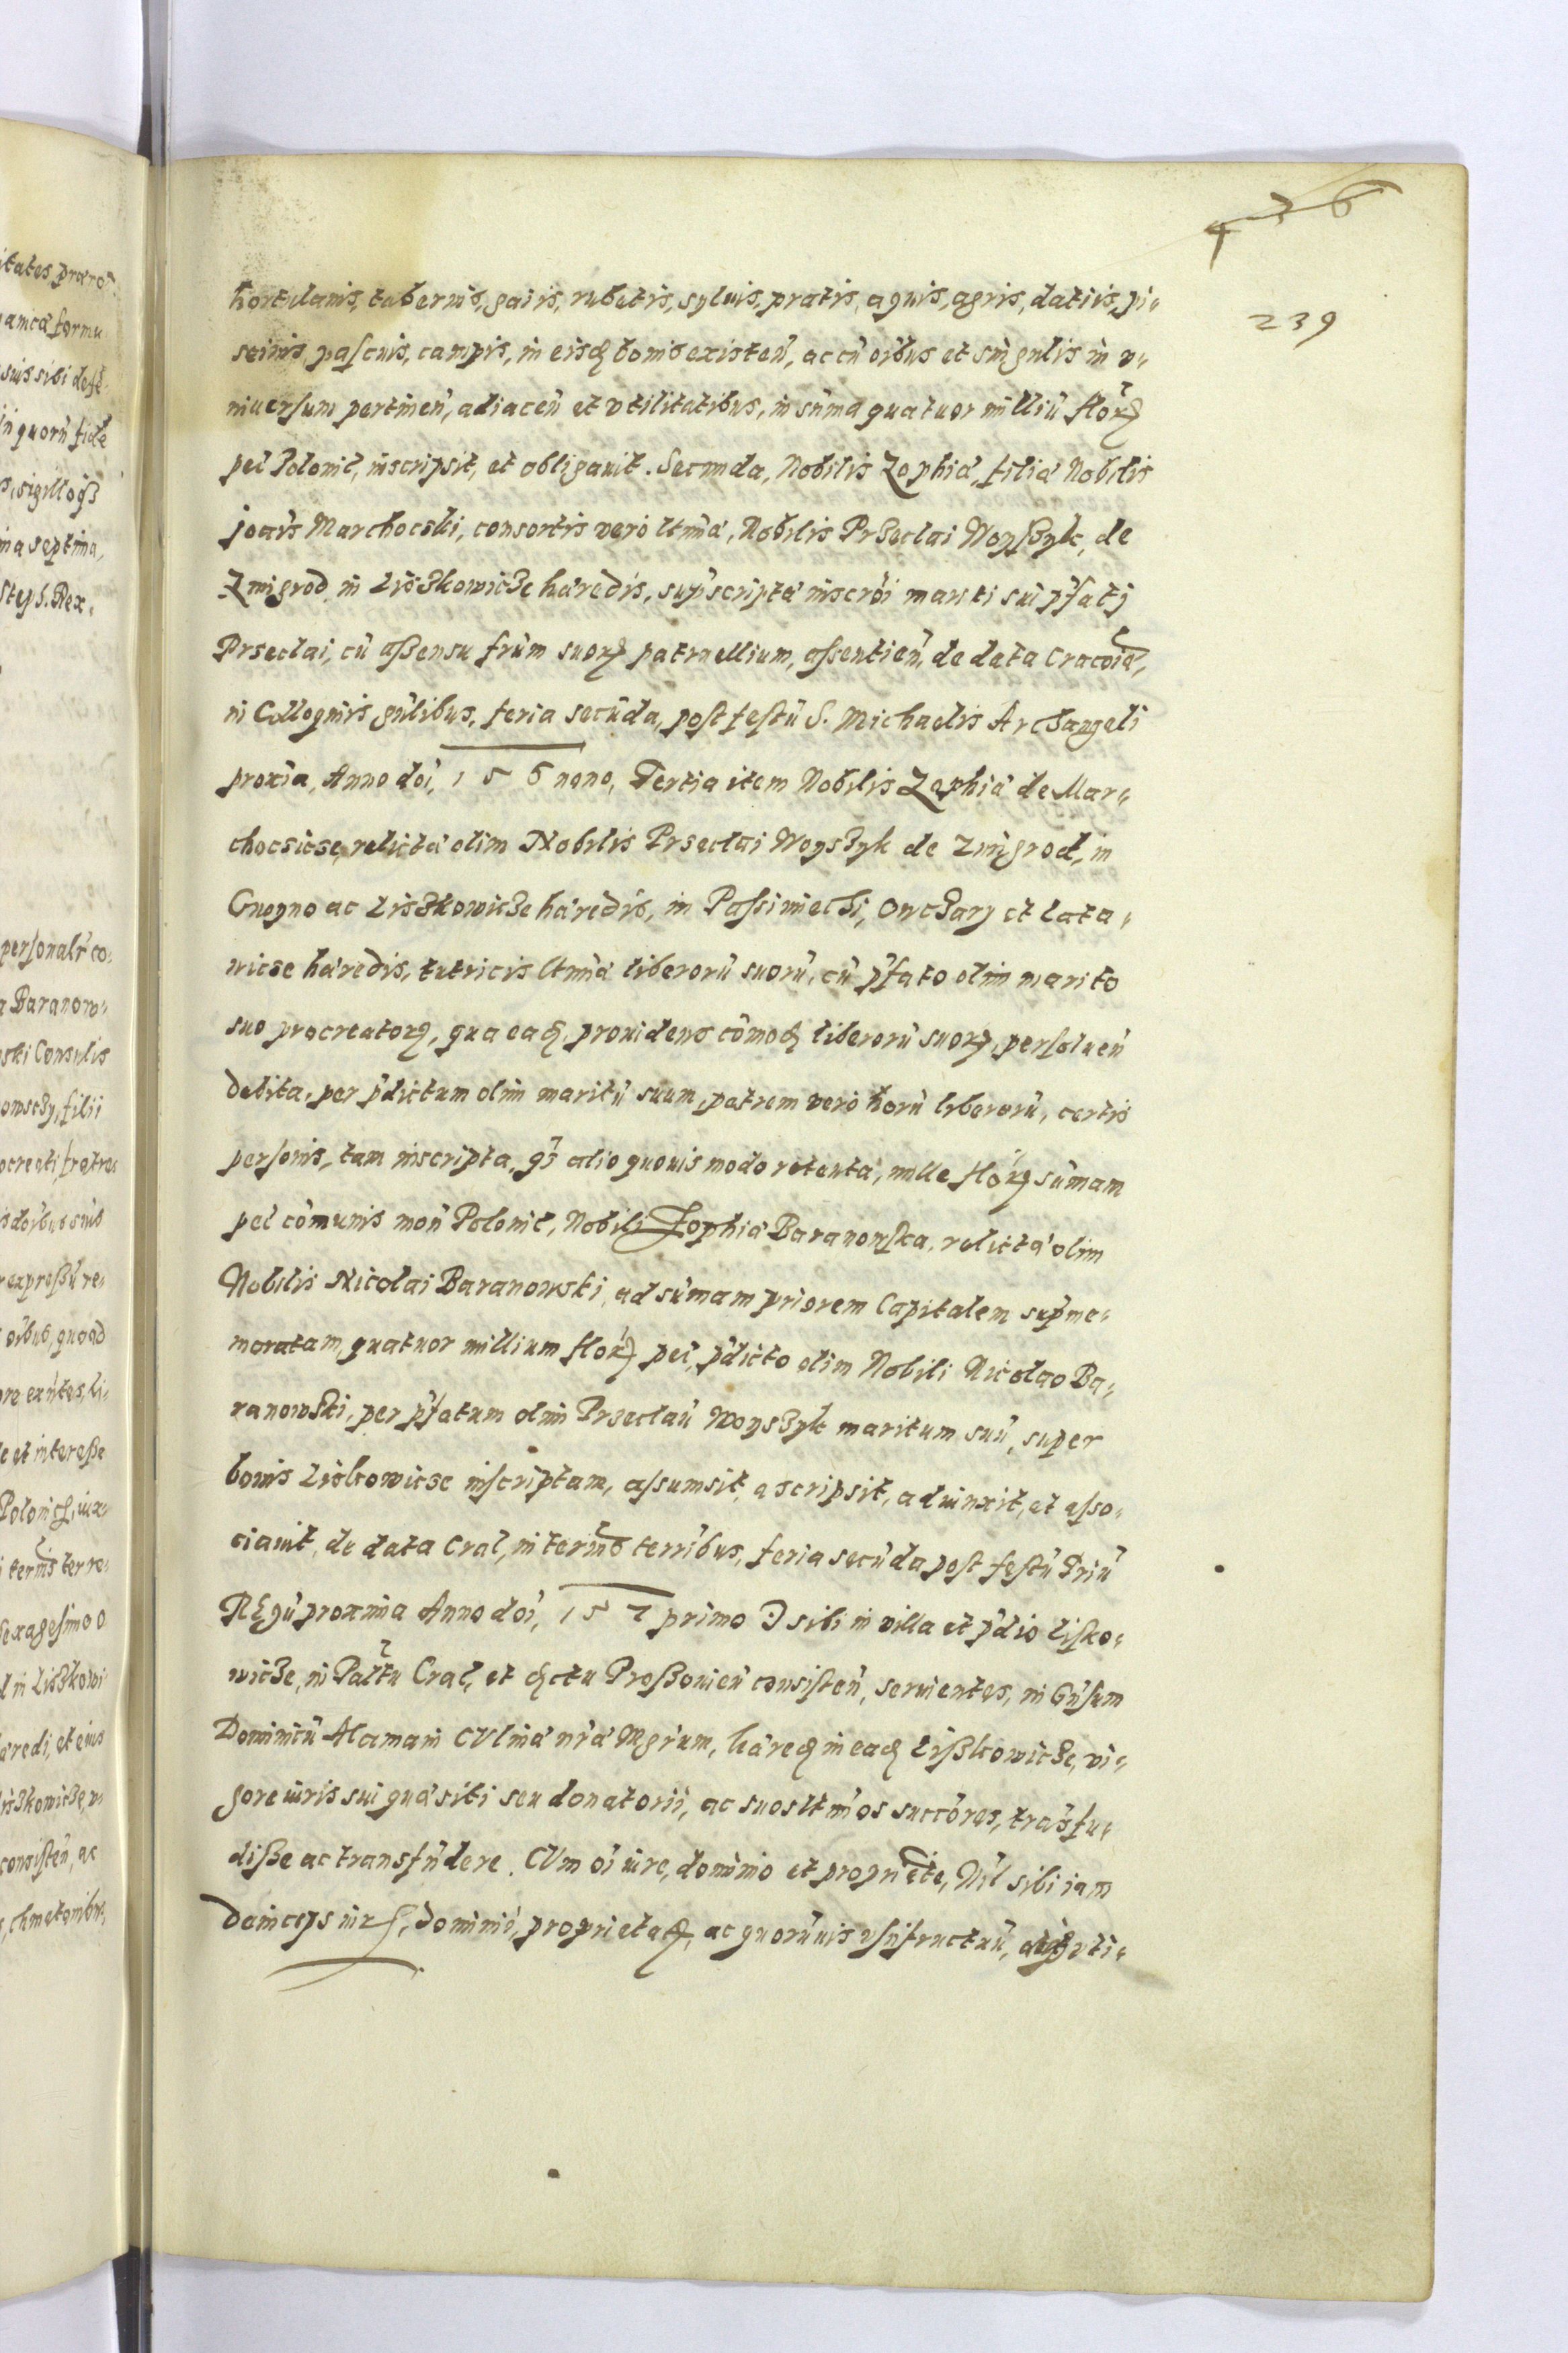 436
239
hortulanis, tabernis, gaiis, rubetis, syluis, pratis, aquis, agris, datiis, pi-
scinis, pascuis, campis, in eisq bonis existeñ, ac cū oībus et singulis in v-
niuersum pertineñ, adiaceñ et vtilitatibus, in sūma quatuor milliū flor
pec̃ Polonic̃, inscripsit, et obligauit. Secunda, Nobilis Zophia, filia Nobilis
joaīs Marchocski, consortis vero ltmã, Nobilis Przeclai Woyszyk, de
Zmigrod in Liszkowicze haredis, supscripta inscrōi mariti sui pfatj
Przeclai, cū assensu frūm suor patruellium, assentieñ, de data Cracoia,
in Colloquiis gñlibus, feria secūda, post festū S. Michaelis Archangeli
proxīa, Anno doī, 156 nono, Tertia item Nobilis Zophia de Mar-
chocsicse relicta olim Nobilis Prseclai Woyszyk de Zmigrod, in
Gnoyno ac Liszkowicze haredis, in Passimiechi, Owczary et Lata-
wicse haredis, tutricis ltmã liberorū suorū, cū pfato olim marito
suo procreator, qua eaq prouidens cōmoq liberorū suor, persolueñ
debita, per pdictum olim maritū suum, patrem vero horū liberorū, certis
personis, tam inscripta, qs alio quouis modo retenta, mille flor sūmam
pec̃ cōmunis moñ Polonic̃, Nobili Zophia Baranowska, relicta olim
Nobilis Nicolai Baranowski, ad sūmam priorem Capitalem supme-
moratam, quatuor millium flor pec̃, pdicto olim Nobili Nicolao Ba-
ranowski, per pfatum olim Przeclaū Woyszyk maritum suū, super
bonis Liskowicse inscriptam, assumsit, ascripsit, adiunxit, et asso-
ciauit, de data Crac̃, in termīs terrībus, feria secūda post festū Triū
REgū proxima Anno doī, 157 primo D sibi in villa et pdio Lisko-
wicze, in Palttu Crac̃, et qctu Proszouieñ consisteñ, seruientes, in Gñsum
Dominicū Alamani CVlinã nrã Mgrum, hareq in eaq Liszkowicze, vi-
gore iuris sui quasiti seu donatorii, ac suos ltmos succōres, trāsfu-
disse ac transfūdere. CVm oī iure, dominio et propriete, Nil sibi iam
dainceps iur, dominii, proprietat, ac quorūuis vsufructuū, vti-